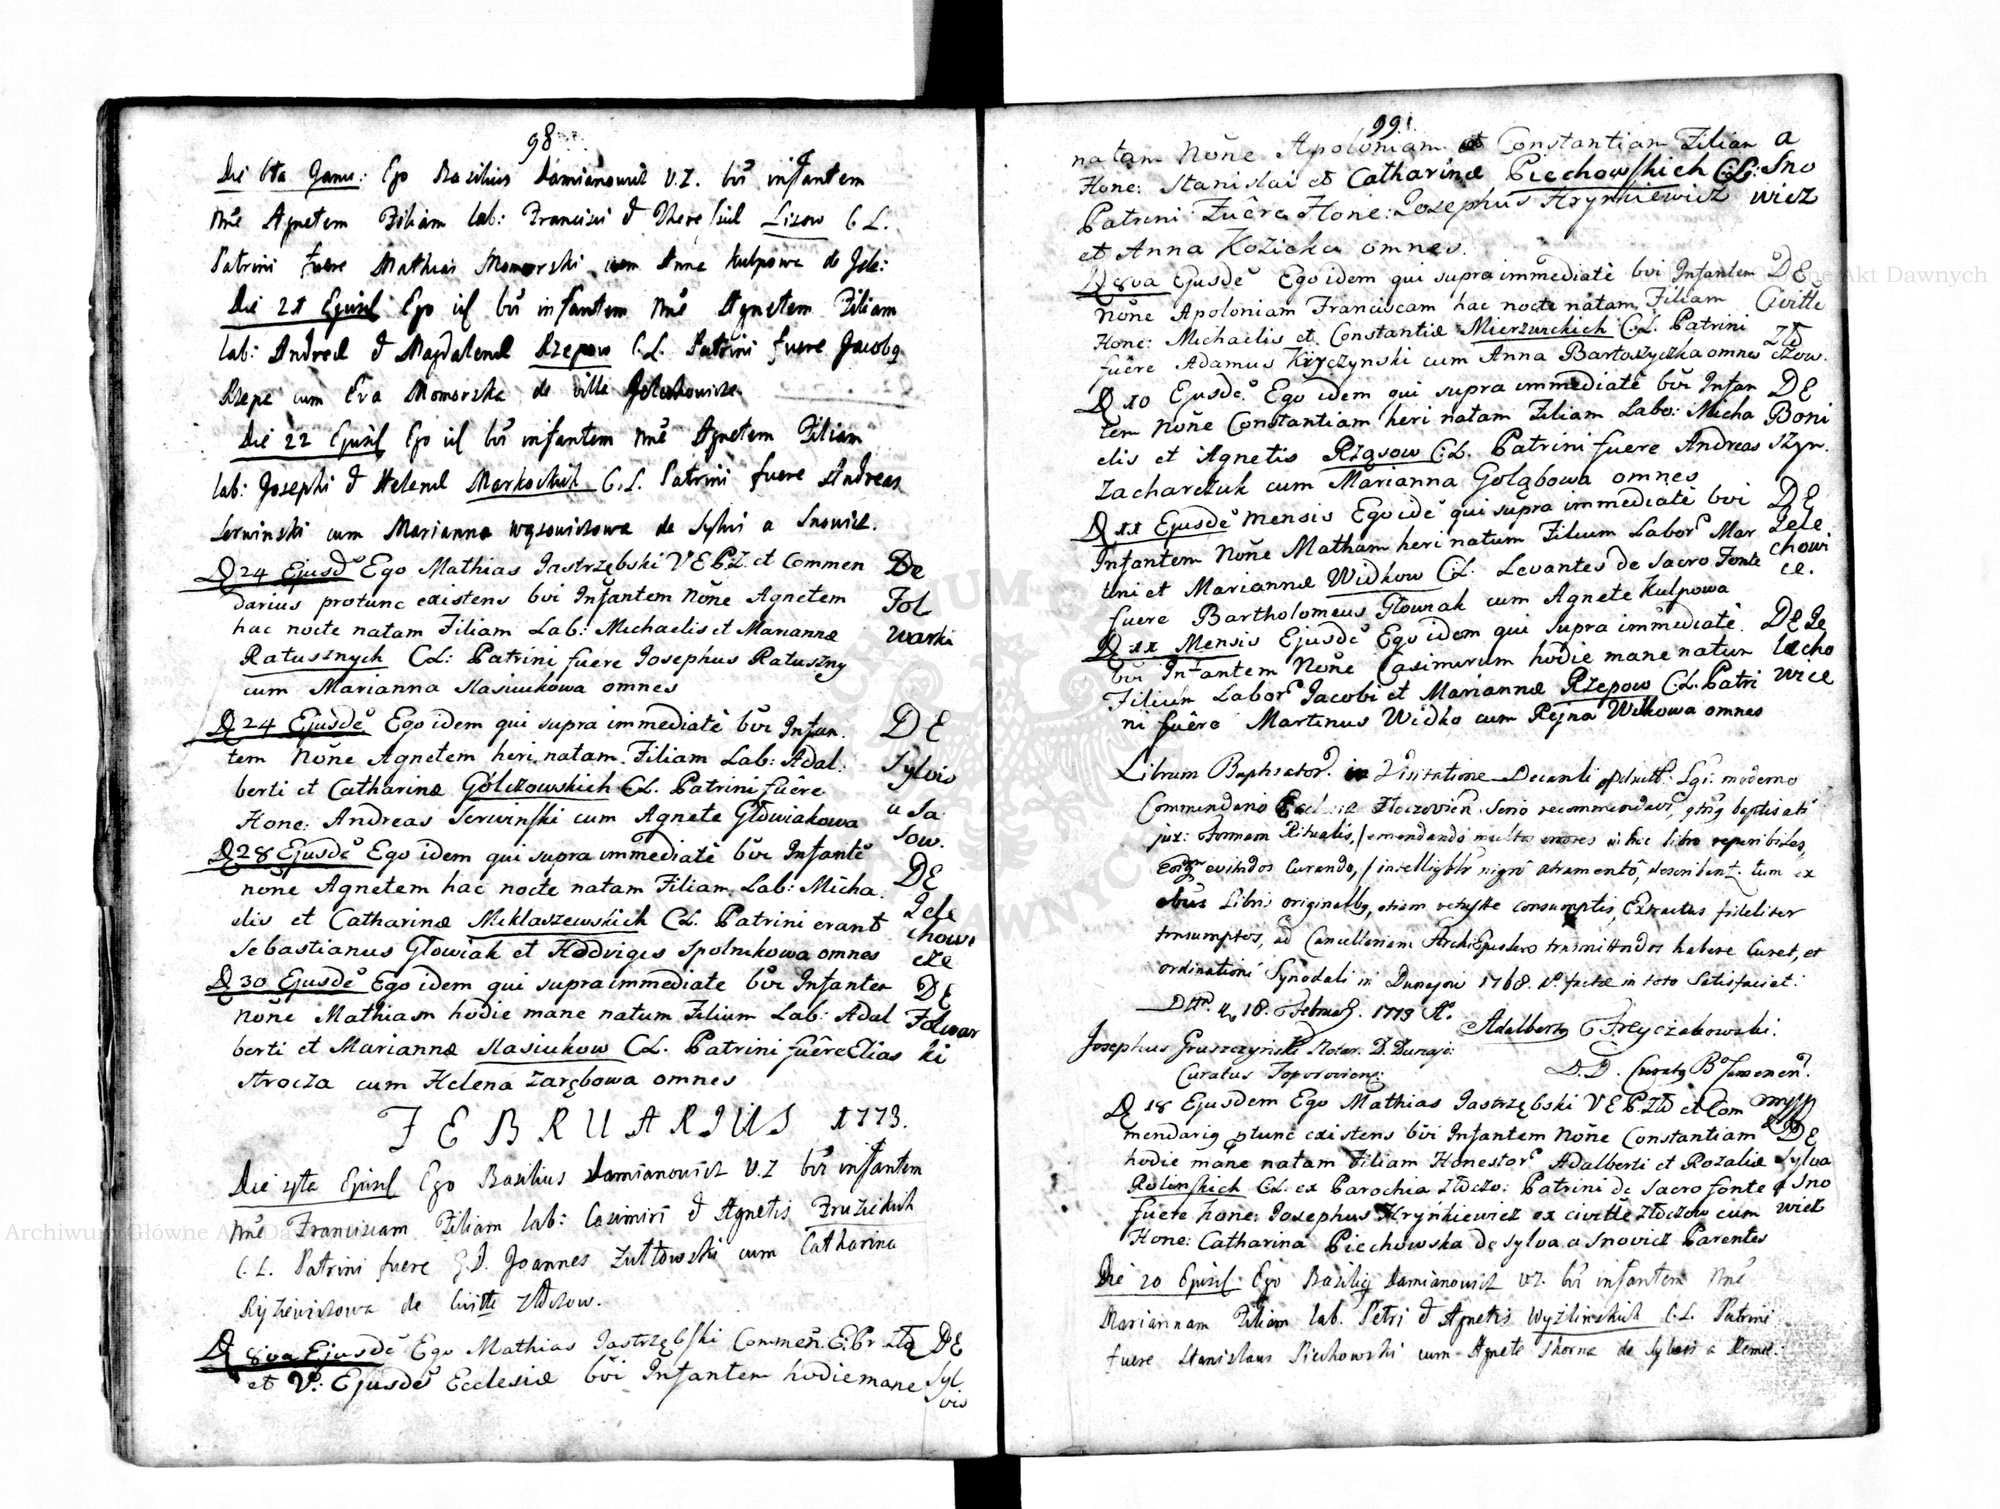 98
Die 6ta Janu: Ego Basilius Damianowicz V.Z. bũ infantem
nñe Agnetem Filiam lab: Francisci & Theresiæ Lisow C L.
Patrini fuere Mathias Momorski cum Anna Kulpowa de Jele:
Die 21 Ejusd Ego id bũ infantem nñe Agnetem Filiam
lab: Andreæ & Magdalenæ Rzepow C.L. Patrini fuere Jacobq
Rzepa cum Eva Momorska de villa Jelechowice
Die 22 Ejusd Ego id bũ infantem nñe Agnetem Filiam
lab: Josephi & Helenæ C.L. Patrini fuere Andreas
Serwinski cum Marianna Wąsowiczowa de Sylvi a Snowicz.
D 24 Ejusdẽ Ego Mathias Jastrzębski V E P Z. et Commen De
darius protunc existens bvi Infantem Nõñe Agnetem Fol
hac nocte natam Filiam Lab: Michaelis et Mariannæ warki
Ratusznych CL: Patrini fuere Josephus Ratuszny
cum Marianna Stasiukowa omnes
D 24 Ejusdẽ Ego idem qui supra immediatè bvi Infan. DE
tem Nõñe Agnetem heri natam Filiam Lab: Adal: Sylvis
berti et Catharinæ Gołczowskich C.L. Patrini fuêre
Hone: Andreas Serwinski cum Agnete Głowiakowa a Sa
sow.
D 28 Ejusdẽ Ego idem qui supra immediatè bvi Infantẽ
nõñe Agnetem hac nocte natam Filiam Lab: Micha: DE
elis et Catharinæ Miklaszewskich C.L. Patrini erant Jele
Sebastianus Głowiak et Hedvigis Spolnikowa omnes chowi
cze
D 30 Ejusdẽ Ego idem qui supra immediate bvi Infantem DE
Nõñe Mathiam hodie mane natum Filium Lab: Adal Folwar
berti et Mariannæ Stasiukow C.L. Patrini fuêre Elias ki
Strocza cum Helena Zarębowa omnes
FEBRUARIUS 1773.
Die Ejusd Ego Basilius Damianowicz V.Z bũ infantem
nñe Franciscam Filiam lab: Casimiri & Agnetis Fruzickich
C.L. Patrini fuere G.D. Joannes Zułtowski cum Catharina
Ryziewiczowa de Civitte Złoczow.
D 8va Ejusdẽ Ego Mathias Jastrzębski Commen. E. Pr Zło DE
et V: Ejusdẽ Ecclesiæ bvi Infantem hodie mane Syl.
vis
99.
natam Nõñe Apoloniam et Constantiam Filian a
Hone: Stanislai et Catharinæ Piechowskich C:L: Sno
Patrini Fuêre Hone: Josephus Hrynkiewicz wicz
et Anna Kozicka omnes.
D 8va Ejusdẽ Ego idem qui supra immediatè bvi Infantem DE
Nõñe Apoloniam Franciscam hac nocte natam Filiam Civitte
Hone: Michaelis et Constantiæ Mierzwickich C.L. Patrini Zło
fuêre Adamus Kryczynski cum Anna Bartoszyczka omnes czow.
D 10 Ejusdẽ Ego idem qui supra immediatè bvi Infan DE
tem Nõñe Constantiam heri natam Filiam Labo: Micha Boni
elis et Agnetis Rząsow C.L. Patrini fuere Andreas szyn.
Zacharczuk cum Marianna Gołąbowa omnes
D 11 Ejusdẽ mensis Ego idẽ qui supra immediatè bvi DE
Infantem Nõñe Matham heri natum Filium Labor Mar Jele
tini et Mariannæ Widkow C.L. Levantes de Sacro Fonte chowi
fuere Bartholomeus Głowiak cum Agnete Kulpowa ce.
D 11 Mensis Ejusdẽ Ego idem qui supra immediatè. DE Je
bvi Infantem Nõñe Casimirum hodie mane natum lecho
Filium Labor Jacobi et Mariannæ Rzepow C.L. Patri wice
ni fuêre Martinus Widko cum Rejna Witkowa omnes
Librum Baptisator. in Visitatione Decanli moderno
Commendario Złoczovien. Serio recommendavi, baptisati
jux: Formam Ritualis, emendando multos errores in hic libro reperibiles,
evitandos Curando, intelligblr nigrô atramentô, describent. tum ex
Libris originalbq, etiam vetuste consumptis, Extractus fideliter
transumptos, ad Cancellariam ArchiEpislem transmittendos habere Curet, et
ordinationi Synodali in Dunajow 1768. factæ in toto Satisfaciet.
Dtt. 18. Februarj. 1773 A.
Adalbertq Freyczakowski.
Josephus Gruszczyński Notar. D. Dunajo:
Curatus Toporoviens: D.D.
D 18 Ejusdem Ego Mathias Jastrzębski V E P. Zło et Com
mendariq ptunc existens bvi Infantem Nõñe Constantiam DE
hodie mane natam Filiam Honestor Adalberti et Rozaliæ Sylva
Rolinskich C.L. ex Parochia Złoczo: Patrini de Sacro fonte a Sno
fuere hone: Josephus Hrynkiewicz ex civitte Złoczow cum wicz
Hone: Catharina Piechowska de Sylva a Snovicz Parentes
Die 20 Ejusd Ego Basiliq Damianowicz V.Z. bũ infantem nñe
Mariannam Filiam lab. Petri & Agnetis Wyźlinskich C.L. Patrini
fuere Stanislaus Piechowski cum Agnete Skorna de Sylvis a
Archiwum Główne Akt Dawnych